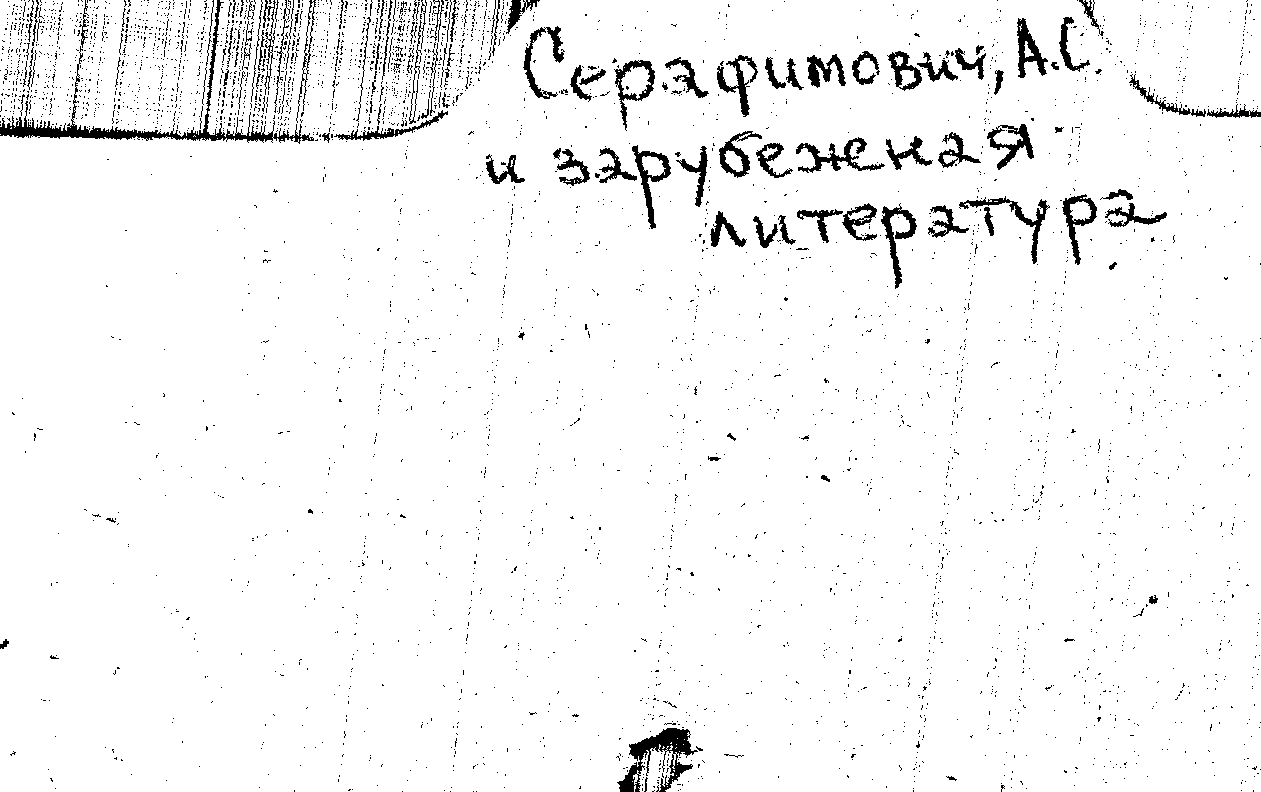 Серафимович, А.С.
и зарубежная
литература